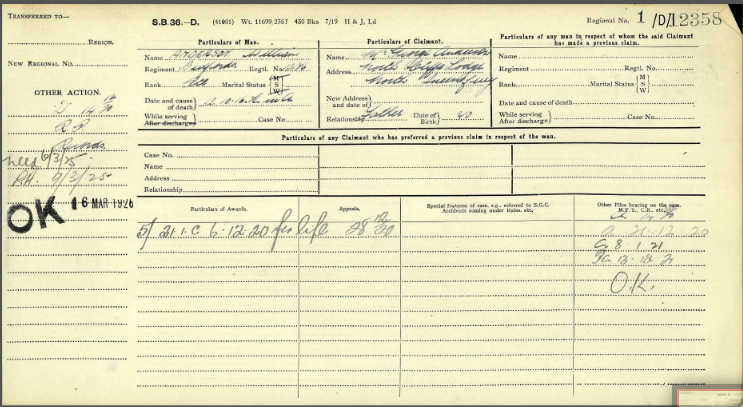 TRANSFERRED TO—
S.B.36.—D. (41981) Wt. 11699/2562 450 Bks 7/19 H & J, Ld
Regional No. 1/D/12358
REGION.
NEW REGIONAL No.
OTHER ACTION.
Records
9/3/25
OK 16 MAR 1926
Particulars of Man.
Name ANDERSON William
Regiment
Regtl. No.
Rank Pte
Marital Status M S W
Date and cause of death
While serving
After discharge
Case No.
Particulars of Claimant.
Name Mr George Anderson
Address North Lodge
North
New Address and date of
Relationship Father
Date of Birth 40
Particulars of any man in respect of whom the said Claimant has made a previous claim.
Name
Regiment
Regtl. No.
Rank
Marital Status M S W
Date and cause of death
While serving
After discharge
Case No.
Particulars of any Claimant who has preferred a previous claim in respect of the man.
Case No.
Name
Address
Relationship
Particulars of Awards.
Appeals.
Special features of case, e.g., referred to S.G.C. Accidents coming under Rules, etc.
Other Files bearing on the case. M.F.S., C.R., etc.
5/ 21.1.C 6.12.20 for life
28 12/20
21.12.20
8.1.21
O.K.